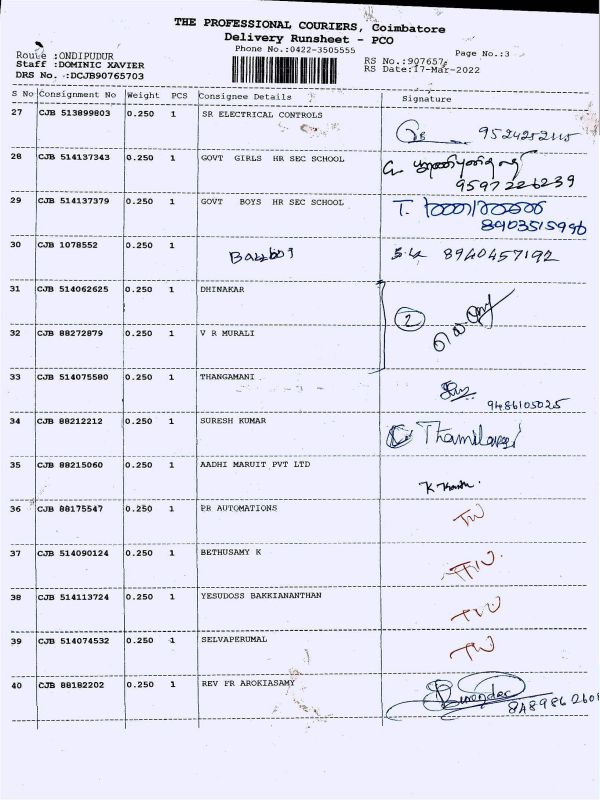 THE PROFESSIONAL COURIERS, Coimbatore
Delivery Runsheet - PCO
Phone No.:0422-3505555
Page No.:3
Route :ONDIPUDUR
Staff :DOMINIC XAVIER
DRS No. :DCJB90765703
RS No.:907657
RS Date:17-Mar-2022
S No Consignment No Weight PCS Consignee Details Signature
27 CJB 513899803 0.250 1 SR ELECTRICAL CONTROLS
9524252115
28 CJB 514137343 0.250 1 GOVT GIRLS HR SEC SCHOOL
9597226239
29 CJB 514137379 0.250 1 GOVT BOYS HR SEC SCHOOL T.
8903515996
30 CJB 1078552 0.250 1 8940457192
31 CJB 514062625 0.250 1 DHINAKAR
2
32 CJB 88272879 0.250 1 V R MURALI
33 CJB 514075580 0.250 1 THANGAMANI
9486105025
34 CJB 88212212 0.250 1 SURESH KUMAR
35 CJB 88215060 0.250 1 AADHI MARUIT PVT LTD
36 CJB 88175547 0.250 1 PR AUTOMATIONS
37 CJB 514090124 0.250 1 BETHUSAMY K
38 CJB 514113724 0.250 1 YESUDOSS BAKKIANANTHAN
39 CJB 514074532 0.250 1 SELVAPERUMAL
40 CJB 88182202 0.250 1 REV FR AROKIASAMY